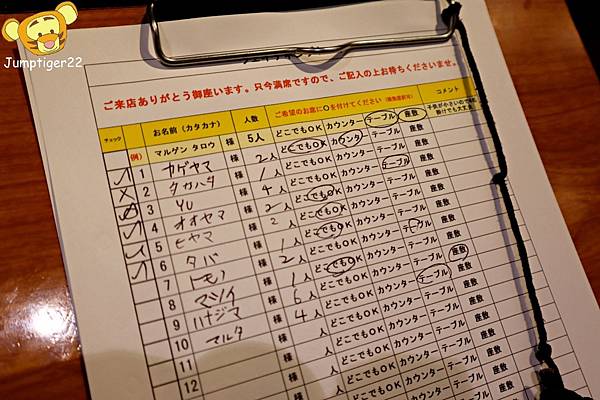 Jumptiger22
ご来店ありがとう御座います。只今満席ですので、ご記入の上お待ちくださいませ。
チェック お名前（カタカナ） 人数 ご希望のお席に○を付けてください（複数選択可） コメント
例） マルゲン タロウ 様 5人 どこでもOK カウンター テーブル 座敷
1 カゲヤマ 様 2人 どこでもOK カウンター テーブル 座敷
2 タカハタ 様 1人 どこでもOK カウンター テーブル 座敷
3 YU 様 4人 どこでもOK カウンター テーブル 座敷
4 オオヤマ 様 2人 どこでもOK カウンター テーブル 座敷
5 ヒヤマ 様 2人 どこでもOK カウンター テーブル 座敷
6 タバ 様 1人 どこでもOK カウンター テーブル 座敷
7 トモノ 様 2人 どこでもOK カウンター テーブル 座敷
8 マツイ 様 1人 どこでもOK カウンター テーブル 座敷
9 ハナジマ 様 6人 どこでもOK カウンター テーブル 座敷
10 マルタ 様 4人 どこでもOK カウンター テーブル 座敷
11 様 人 どこでもOK カウンター テーブル 座敷
12 様 人 どこでもOK カウンター テーブル 座敷